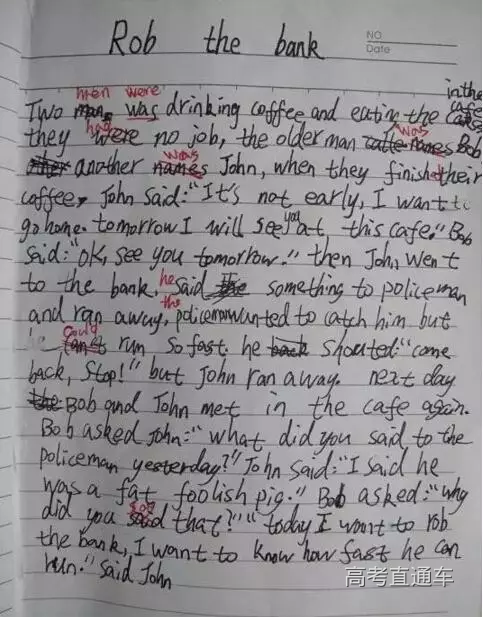 Rob the bank
NO.
Date
men were in the cafe
Two man was drinking coffee and eating the cakes
had was
they were no job, the older man names Bob
was
another names John, when they finished their
coffee, John said: "It's not early, I want to
you
go home. tomorrow I will see at this cafe." Bob
said: "ok, see you tomorrow." then John went
he
to the bank. said something to policeman
the
and ran away, policeman wanted to catch him but
could
he can't run so fast. he back shouted: "come
back, stop!" but John ran away. next day
the Bob and John met in the cafe again.
Bob asked John: "what did you said to the
policeman yesterday?" John said: "I said he
was a fat foolish pig." Bob asked: "why
say
did you said that?" "today I want to rob
the bank, I want to know how fast he can
run." said John
高考直通车